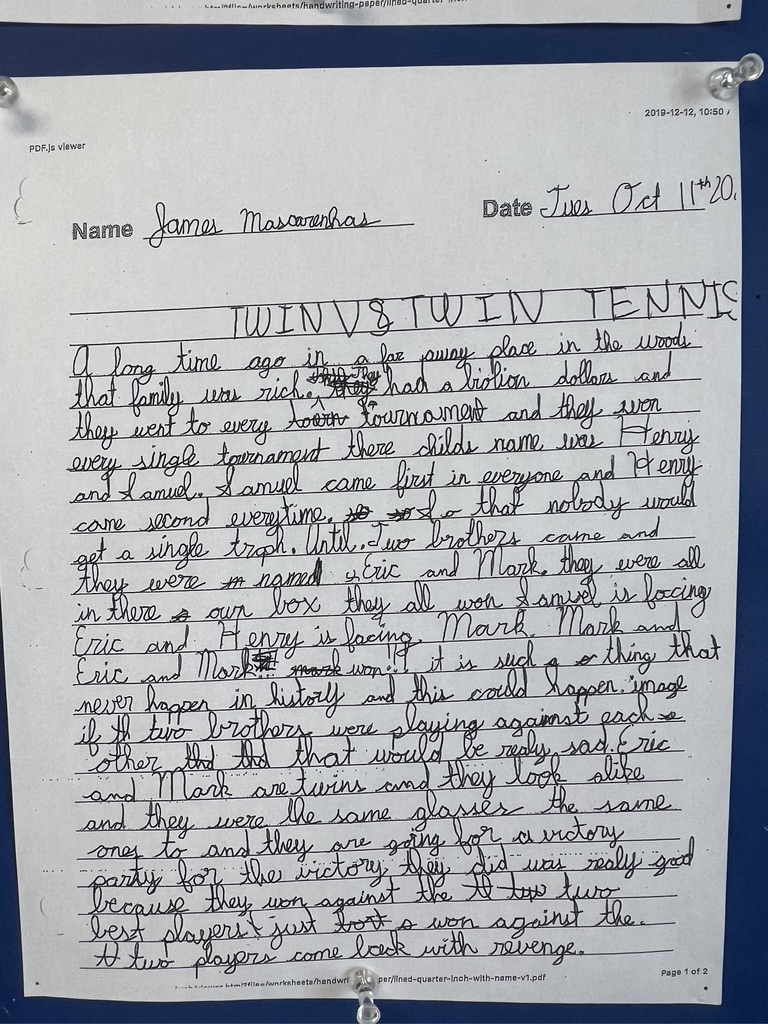 /worksheets/handwriting-paper/lined-quarter-inch
2019-12-12, 10:50
PDF.js viewer
Name James Mascarenhas
Date Tues Oct 11th 20
TWIN VS TWIN TENNIS
A long time ago in a far away place in the woods
that family was rich. They had a biolion dollars and
they went to every tournament and they won
every single tournament there childs name was Henry
and Samuel. Samuel came first in everyone and Henry
came second everytime. So that nobody would
get a single troph. Until. Two brothers came and
they were named Eric and Mark. they were all
in there own box they all won Samuel is facing
Eric and Henry is facing Mark. Mark and
Eric and Mark won!! it is such a thing that
never happen in history and this could happen. image
if th two brothers were playing against each
other that would be realy sad. Eric
and Mark are twins and they look alike
and they were the same glasses the same
ones to and they are going for a victory
party for the victory they did was realy good
because they won against the two
best players just won against the.
two players come back with revenge.
per/lined-quarter-inch-with-name-v1.pdf
Page 1 of 2